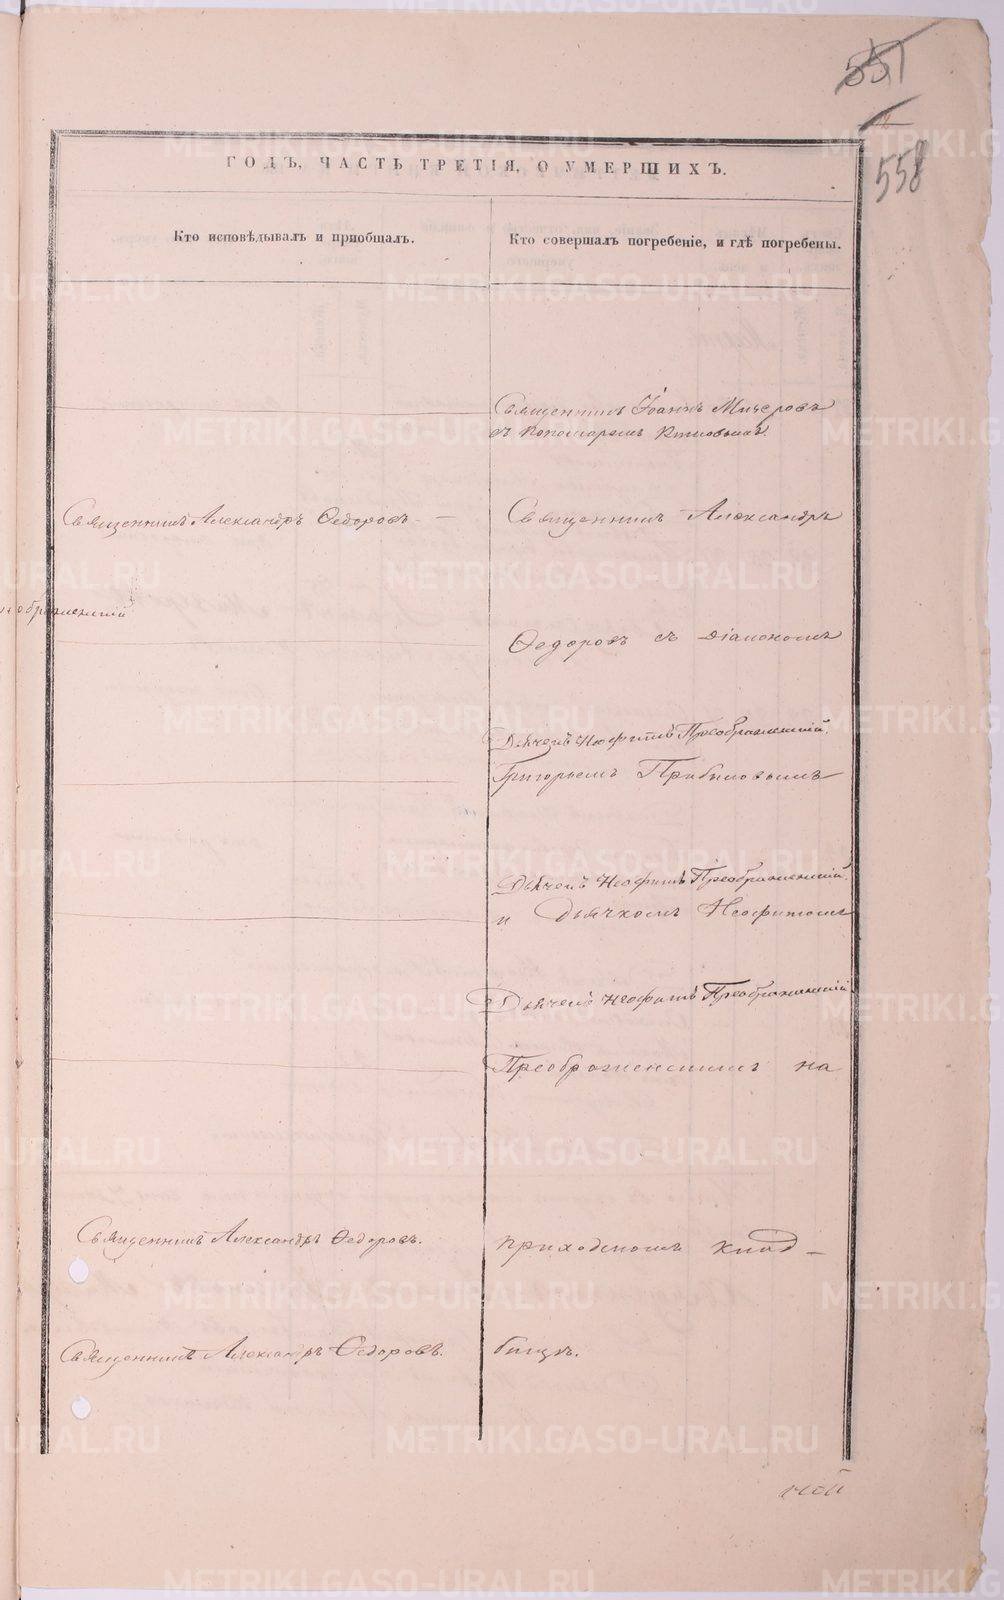 551
558
ГОДЪ, ЧАСТЬ ТРЕТІЯ, О УМЕРШИХЪ.
Кто исповѣдывалъ и пріобщалъ.
Кто совершалъ погребеніе, и гдѣ погребены.
Священникъ Іоаннъ Мичеровъ
съ пономаремъ
Священникъ Александръ Ѳедоровъ
Священникъ Александръ
ображенскій
Ѳедоровъ съ діакономъ
Дьячекъ Неофитъ Преображенскій.
Григорьемъ Прибыловымъ
Дьячекъ Неофитъ Преображенскій.
и Дьячкомъ Неофитомъ
Дьячекъ Неофитъ Преображенскій
Преображенскимъ на
Священникъ Александръ Ѳедоровъ.
приходскомъ клад-
Священникъ Александръ Ѳедоровъ.
бищѣ.
METRIKI.GASO-URAL.RU